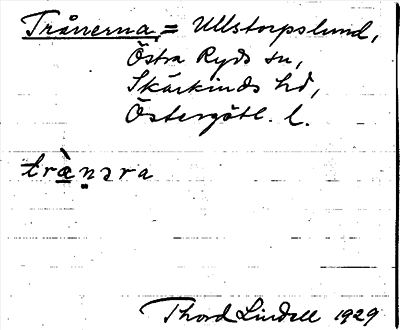 Trånerna, = Ullstorpslund,
Östra Ryds sn,
Skärkinds hd,
Östergötl. l.
træ̀n̥ɘra
Thord Lindell 1929